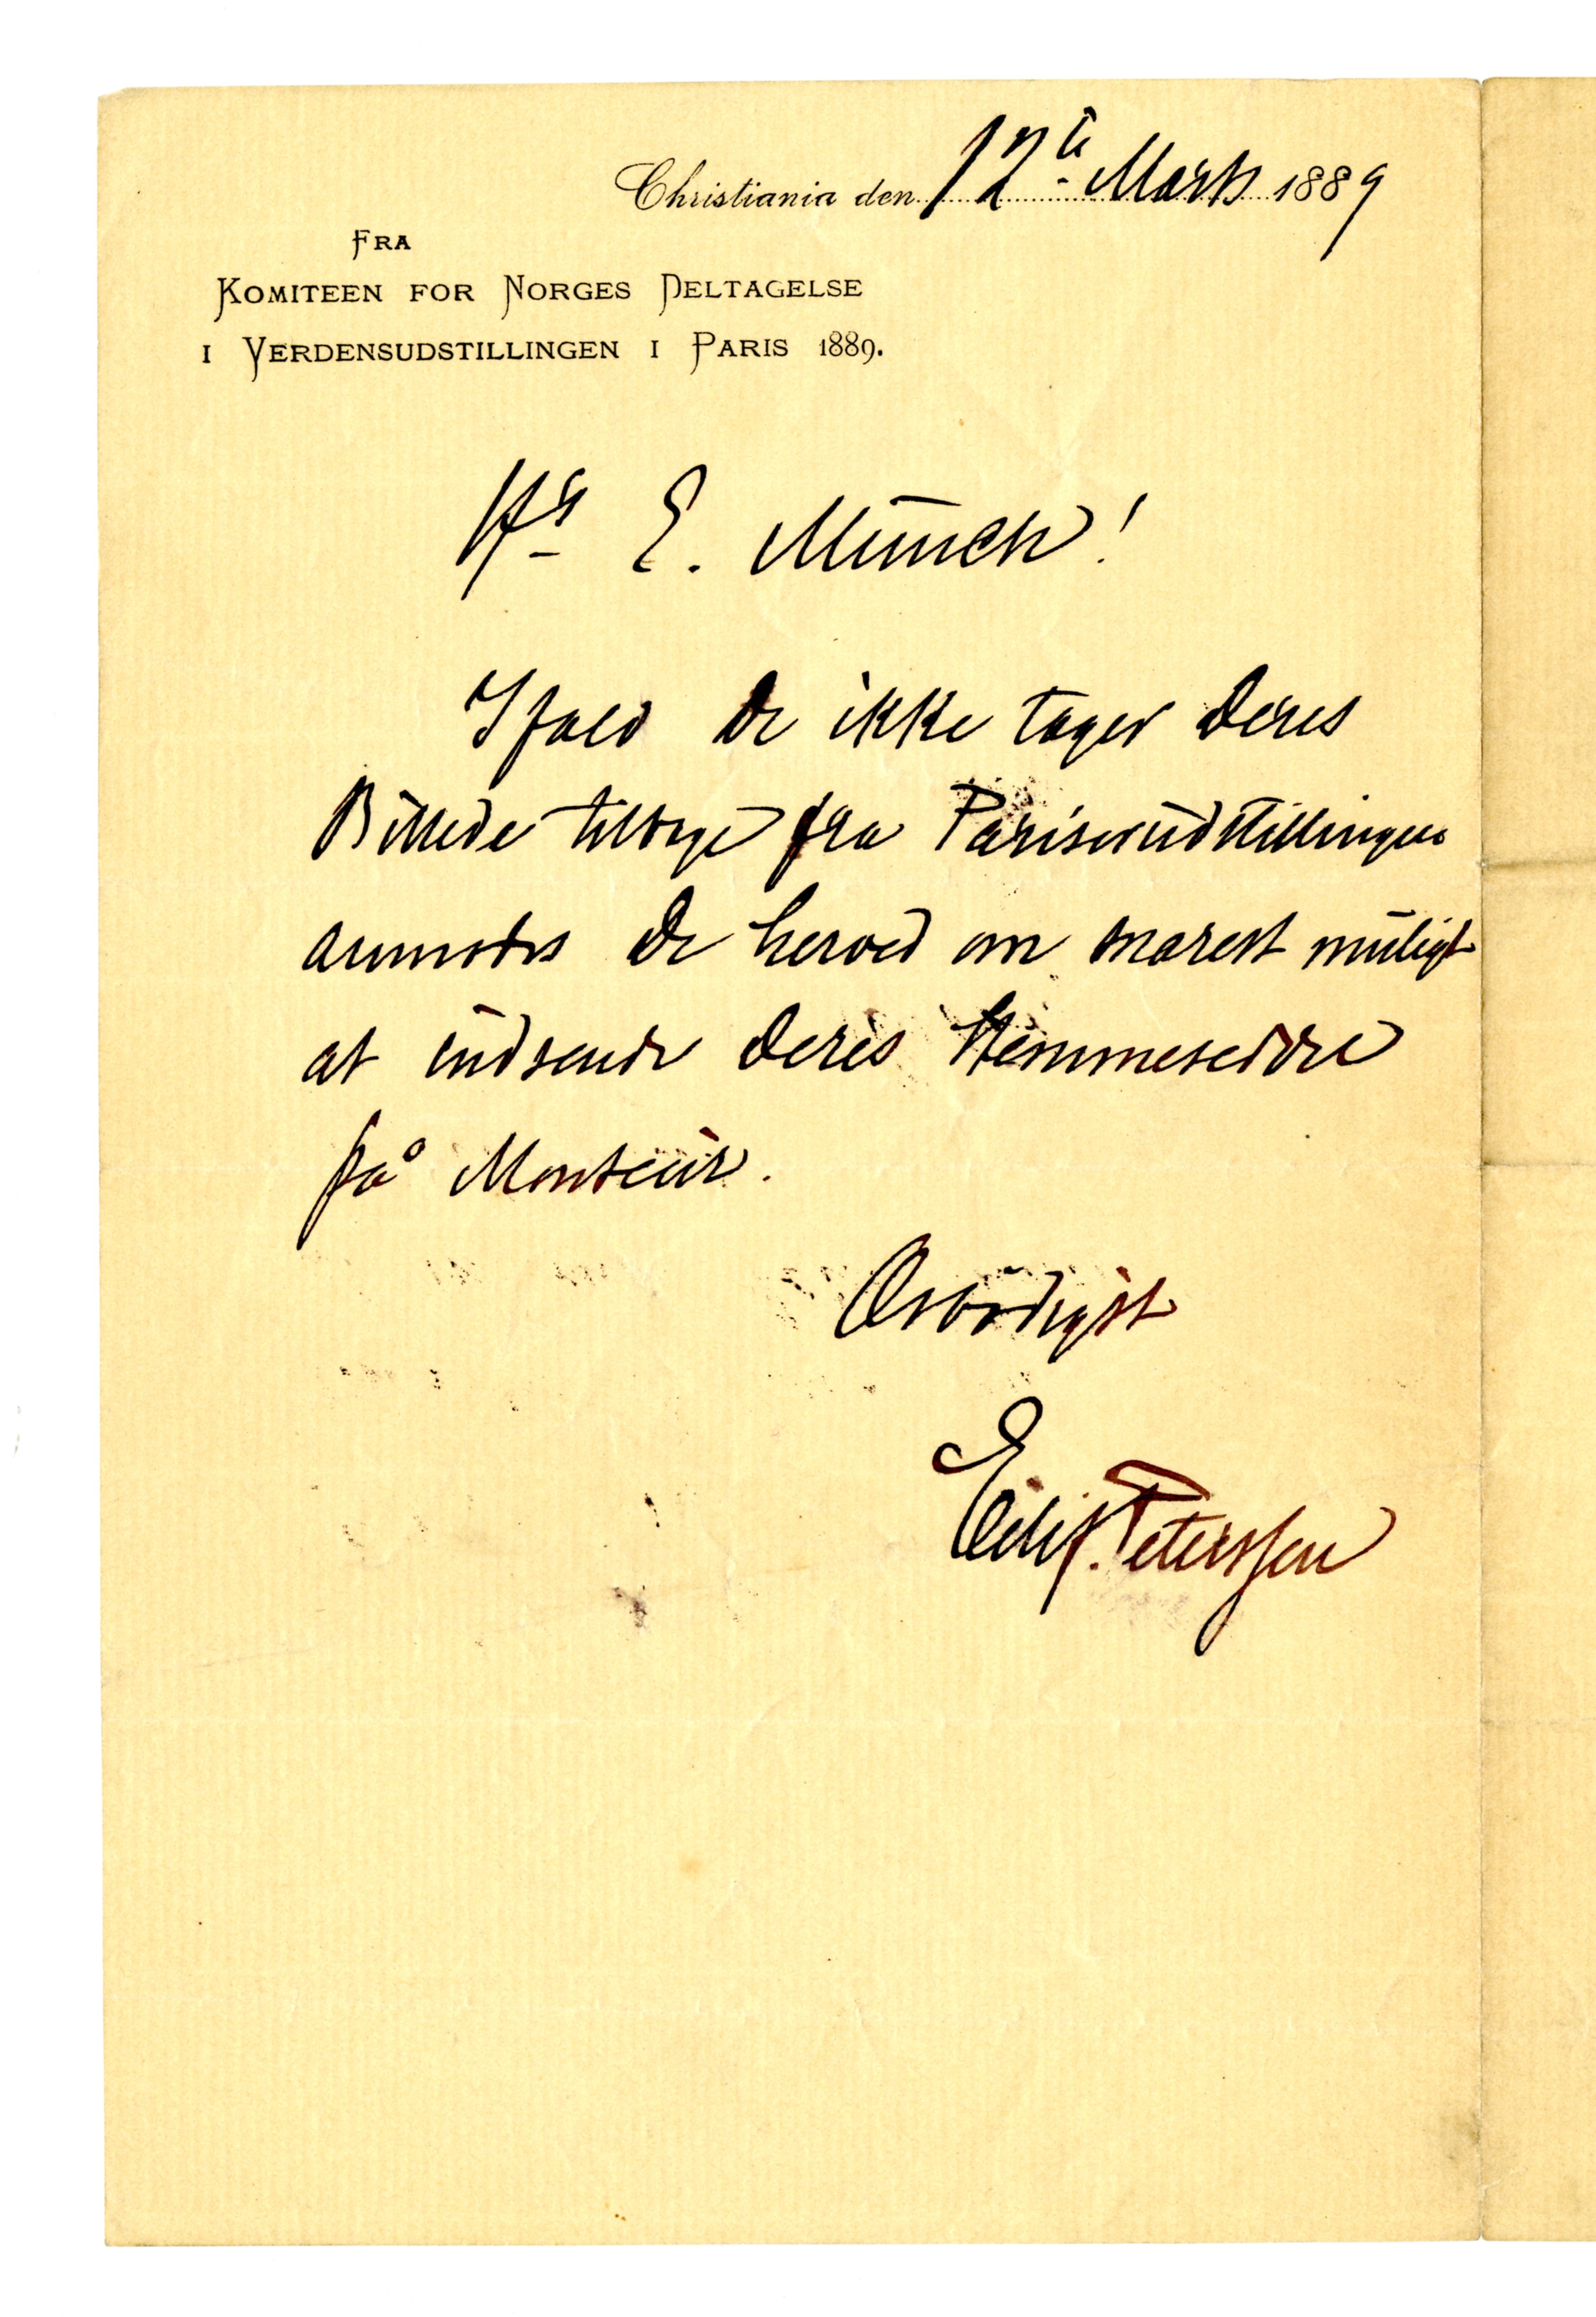 Christiania den 12te Marts 1889
FRA
KOMITEEN FOR NORGES DELTAGELSE
I VERDENSUDSTILLINGEN I PARIS 1889.
Hr E. Munch!
Ifald De ikke tager Deres
Billede tilbage fra Pariserudstillingen
anmodes De herved om snarest muligt
at indsende Deres Stemmeseddel
på Monteur.
Ærbödigst
Eilif Peterssen